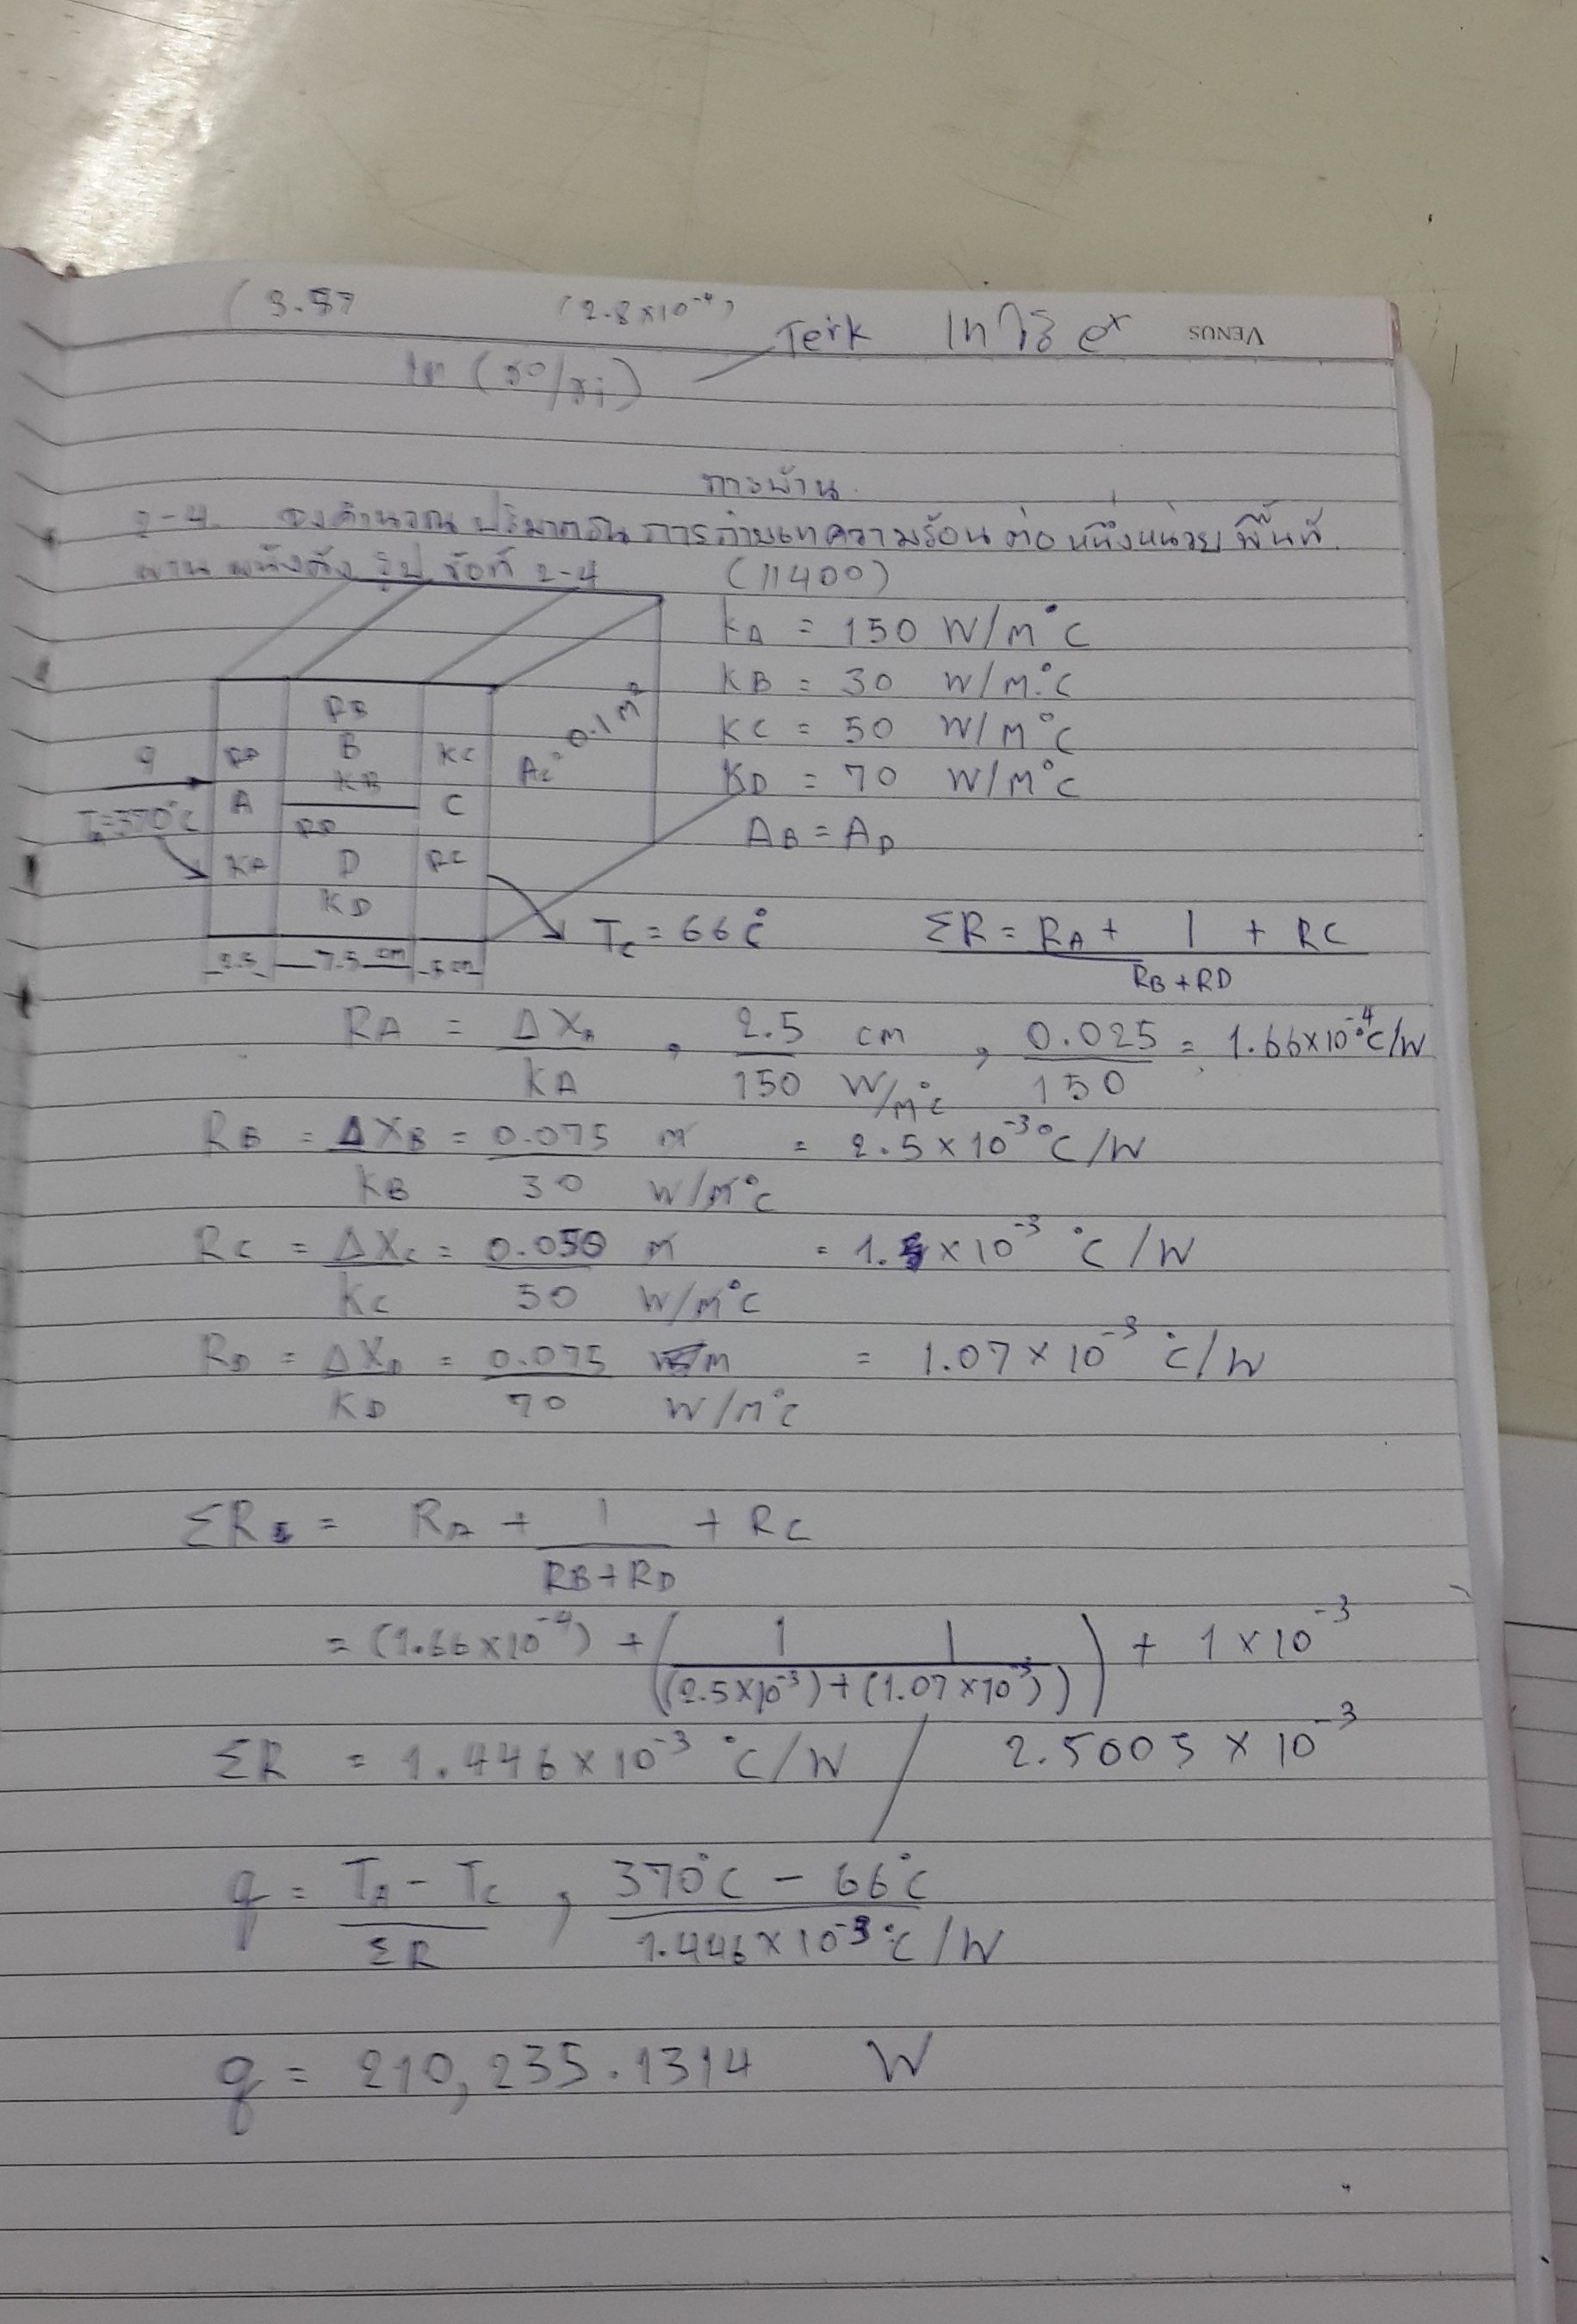 (3.57 (2.8×10⁻⁴) Terk ln ใช้ eˣ VENUS
ln (ro/ri)
การบ้าน
2-4 จงคำนวณปริมาณในการถ่ายเทความร้อนต่อหนึ่งหน่วยพื้นที่
ผ่านผนังดังรูปข้อที่ 2-4 (11400)
kA = 150 W/m°C
KB = 30 W/m.°C
KC = 50 W/m°C
KD = 70 W/m°C
AB = AD
RB
RA B KC
KB
q
A C
RD
Ta=370°C
KA D RC
KD
Ac= 0.1 m²
Tc = 66°C
2.5 7.5 cm 5 cm
ΣR = RA + 1/(RB+RD) + RC
RA = ΔXA/kA , 2.5 cm/150 W/m°C , 0.025/150 = 1.66×10⁻⁴ °C/W
RB = ΔXB/kB = 0.075 m/30 W/m°C = 2.5 × 10⁻³ °C/W
RC = ΔXC/KC = 0.050 m/50 W/m°C = 1. × 10⁻³ °C/W
RD = ΔXD/KD = 0.075 m/70 W/m°C = 1.07 × 10⁻³ °C/W
ΣR = RA + 1/(RB+RD) + RC
= (1.66×10⁻⁴) + (1 1/((2.5×10⁻³)+(1.07×10⁻³))) + 1 × 10⁻³
ΣR = 1.446 × 10⁻³ °C/W / 2.5005 × 10⁻³
q = (TA - TC)/ΣR , (370°C - 66°C)/(1.446×10⁻³ °C/W)
q = 210,235.1314 W